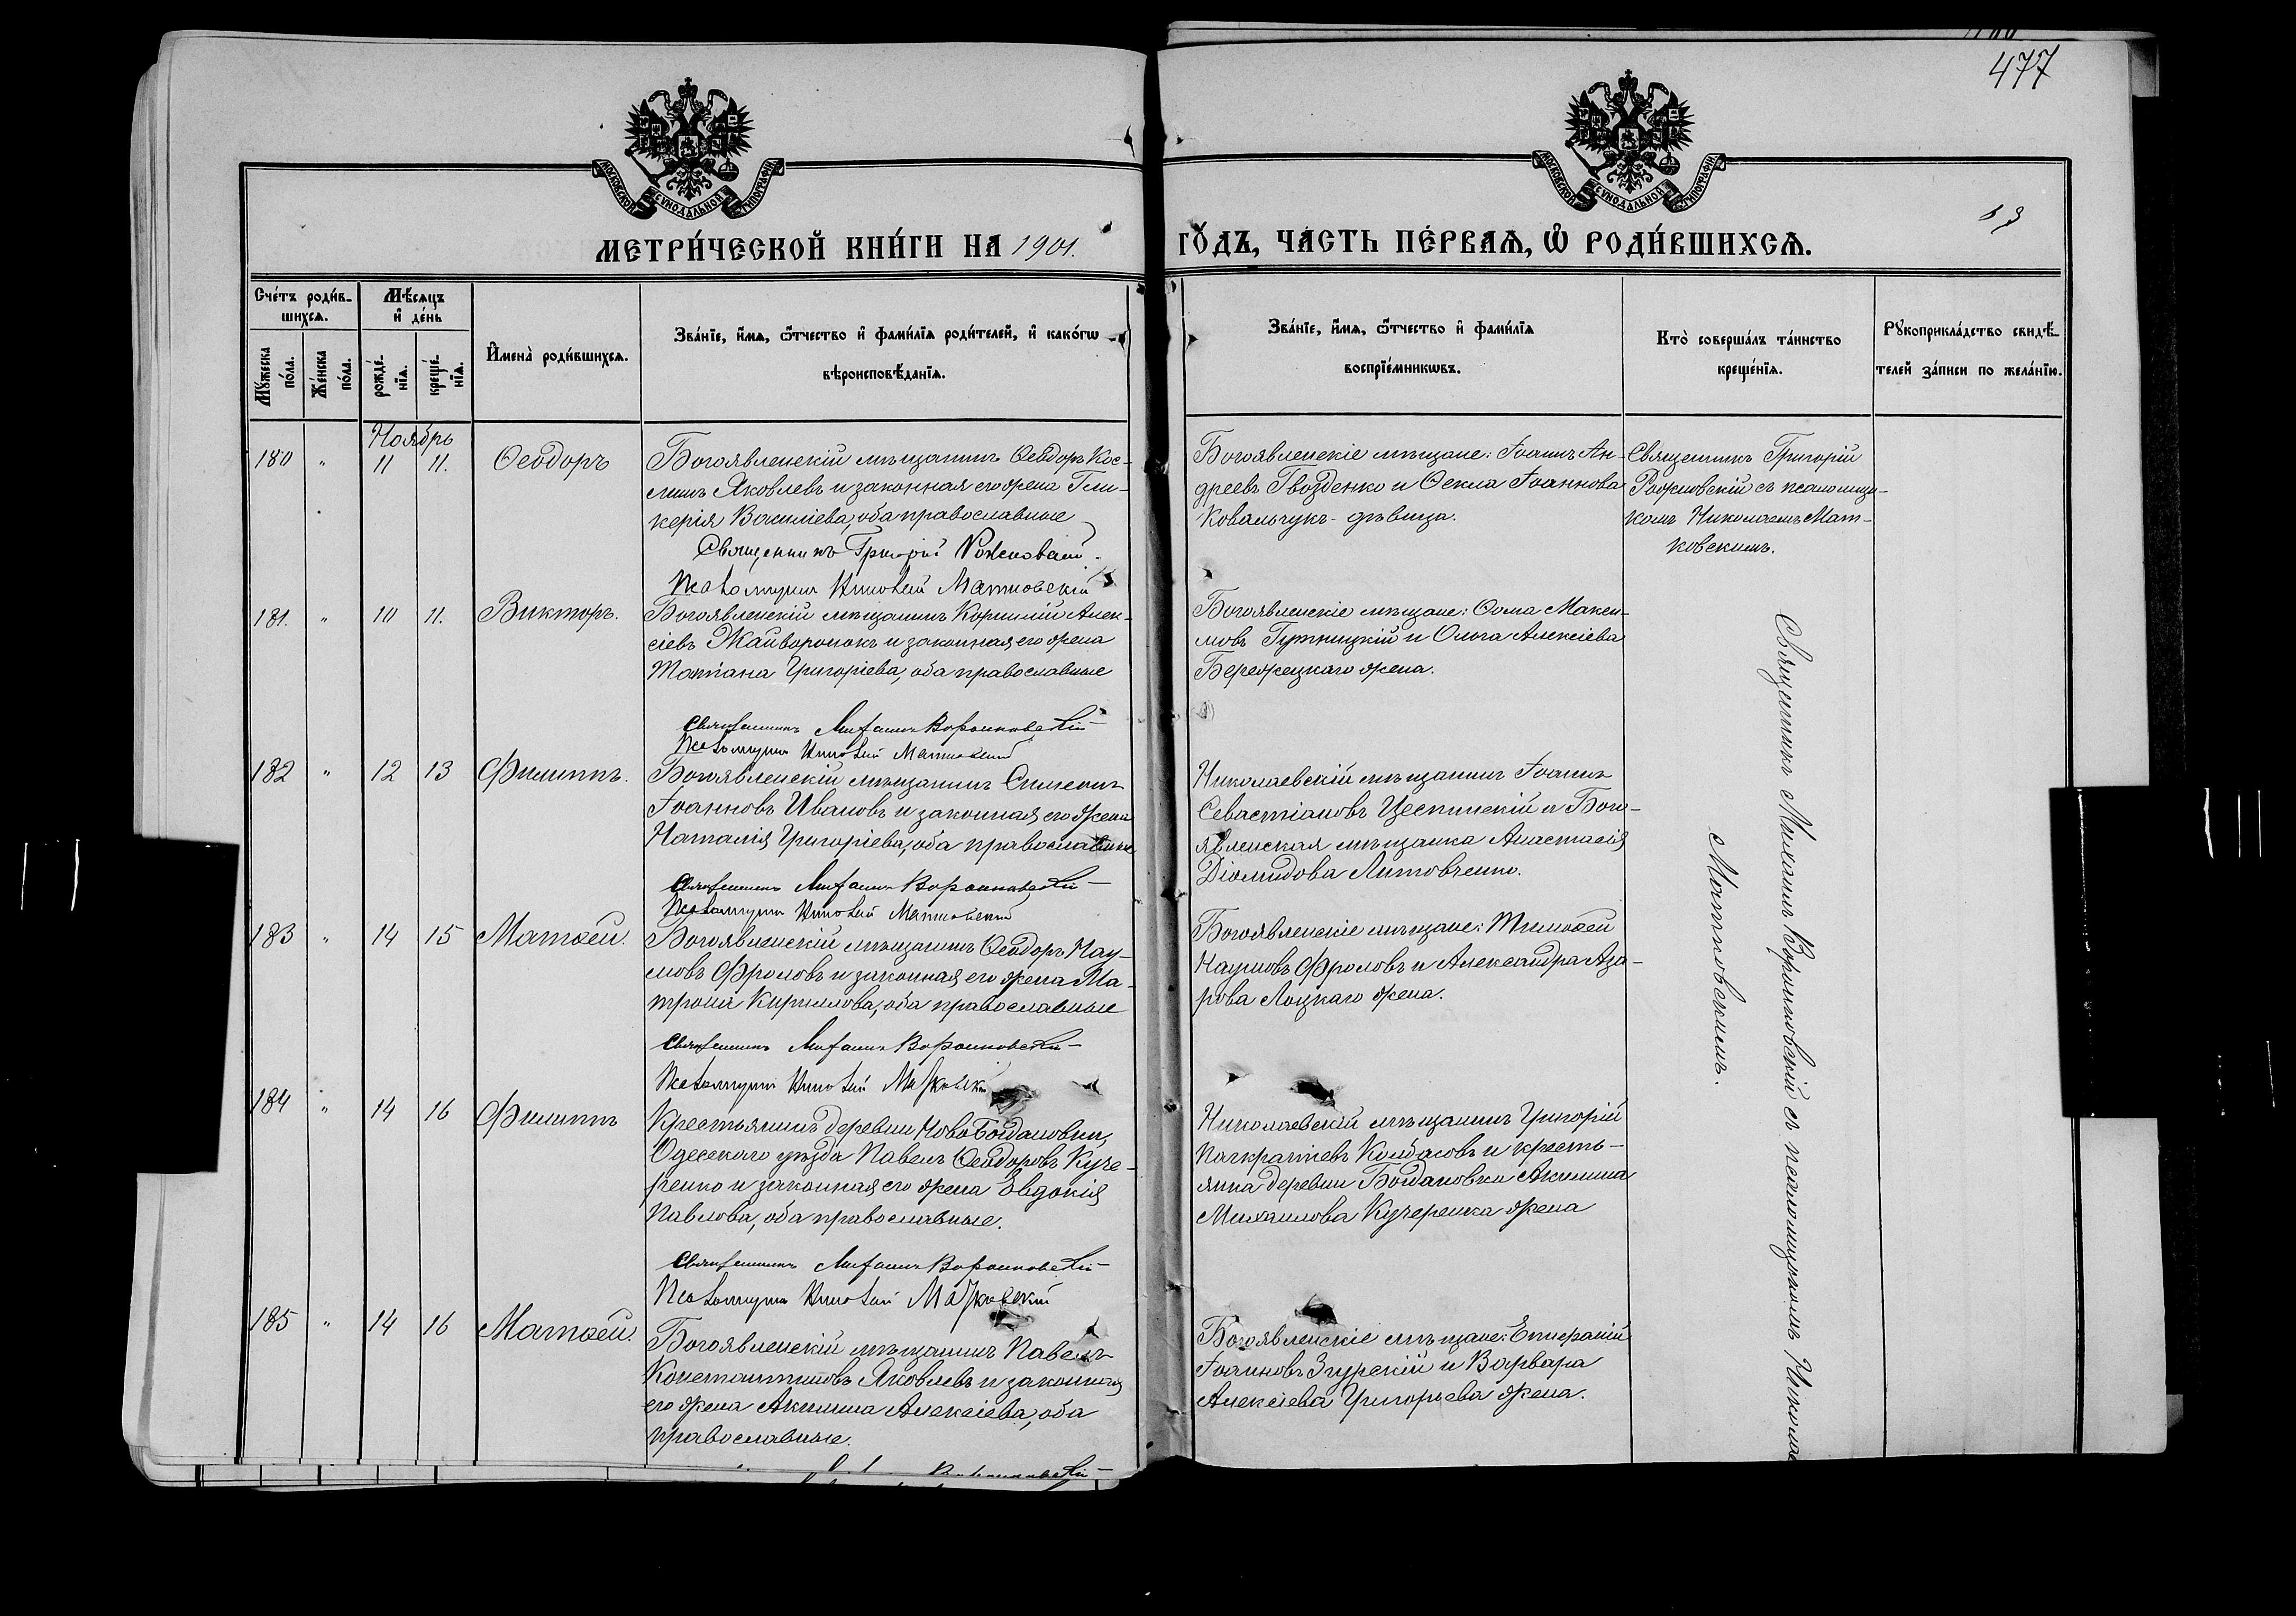 477
МОСКОВСКОЙ СѴНОДАЛЬНОЙ ТИПОГРАФІИ
МОСКОВСКОЙ СѴНОДАЛЬНОЙ ТИПОГРАФІИ
МЕТРИ́ЧЕСКОЙ КНИ́ГИ НА 1901.
ГО́ДЪ, ЧА́СТЬ ПЕ́РВАѦ, Ѡ҆ РОДИ́ВШИХСѦ.
Сче́тъ роди́в-
шихсѧ.
Мꙋ́жеска
по́ла.
Же́нска
по́ла.
Мѣ́сѧцъ
и҆ де́нь
рожде́-
нїѧ.
креще́-
нїѧ.
И҆мена̀ роди́вшихсѧ.
Зва́нїе, и҆́мѧ, ѻ҆́тчество и҆ фами́лїѧ роди́телей, и҆ како́гѡ
вѣроисповѣ́данїѧ.
Зва́нїе, и҆́мѧ, ѻ҆́тчество и҆ фами́лїѧ
воспрїе́мникѡвъ.
Кто̀ соверша́лъ та́инство
креще́нїѧ.
Рꙋкоприкла́дство свидѣ́-
телей за́писи по жела́нїю.
Ноябрь
180 " 11 11. Ѳеодоръ
Богоявленскій мѣщанинъ Ѳеодоръ Кос-
минъ Яковлевъ и законная его жена Гли-
керія Василіева, оба православные
Священникъ Григорій Рожновскій.
Псаломщикъ Николай Матковскій
Богоявленскіе мѣщане: Іоаннъ Ан-
дреевъ Гвозденко и Ѳекла Іоаннова
Ковальчукъ - дѣвица.
Священникъ Григорій
Рожновскій съ псаломщи-
комъ Николаемъ Мат-
ковскимъ.
181. " 10 11. Викторъ.
Богоявленскій мѣщанинъ Корнилій Алек-
сіевъ Жайворонокъ и законная его жена
Татіана Григоріева, оба православные
Священникъ Михаилъ Воронковскій
Псаломщикъ Николай Матковскій
Богоявленскіе мѣщане: Ѳома Макси-
мовъ Гутницкій и Ольга Алексіева
Бережецкаго жена.
182 " 12 13 Филиппъ.
Богоявленскій мѣщанинъ Симеонъ
Іоанновъ Ивановъ и законная его жена
Наталія Григоріева, оба православные
Священникъ Михаилъ Воронковскій
Псаломщикъ Николай Матковскій
Николаевскій мѣщанинъ Іоаннъ
Севастіановъ Цестинскій и Бого-
явленская мѣщанка Анастасія
Діомидова Литовченко.
183 " 14 15 Матѳей.
Богоявленскій мѣщанинъ Ѳеодоръ Нау-
мовъ Фроловъ и законная его жена Ма-
трона Кириллова, оба православные
Священникъ Михаилъ Воронковскій
Псаломщикъ Николай Матковскій
Богоявленскіе мѣщане: Тимоѳей
Наумовъ Фроловъ и Александра Аза-
рова Лоцкаго жена.
184 " 14 16 Филиппъ
Крестьянинъ деревни НовоБогдановки,
Одесскаго уѣзда Павелъ Ѳеодоровъ Куче-
ренко и законная его жена Евдокія
Павлова, оба православные.
Священникъ Михаилъ Воронковскій
Псаломщикъ Николай Матковскій
Николаевскій мѣщанинъ Григорій
Панкратіевъ Колбасовъ и кресть-
янка деревни Богдановки Акилина
Михаилова Кучеренка жена
185 " 14 16 Матѳей.
Богоявленскій мѣщанинъ Павелъ
Константиновъ Яковлевъ и законная
его жена Акилина Алексіева, оба
православные.
Богоявленскіе мѣщане:
Іоанновъ Згурскій и Варвара
Алексіева Григорьева жена.
Священникъ Михаилъ Воронковскій съ псаломщикомъ Николае
Матковскимъ.